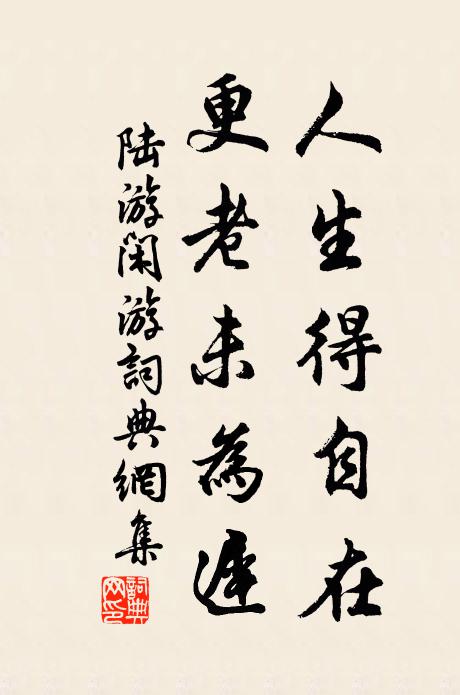 人生得自在
更老未為遲
陸游閑游詞典網集
詞典網印